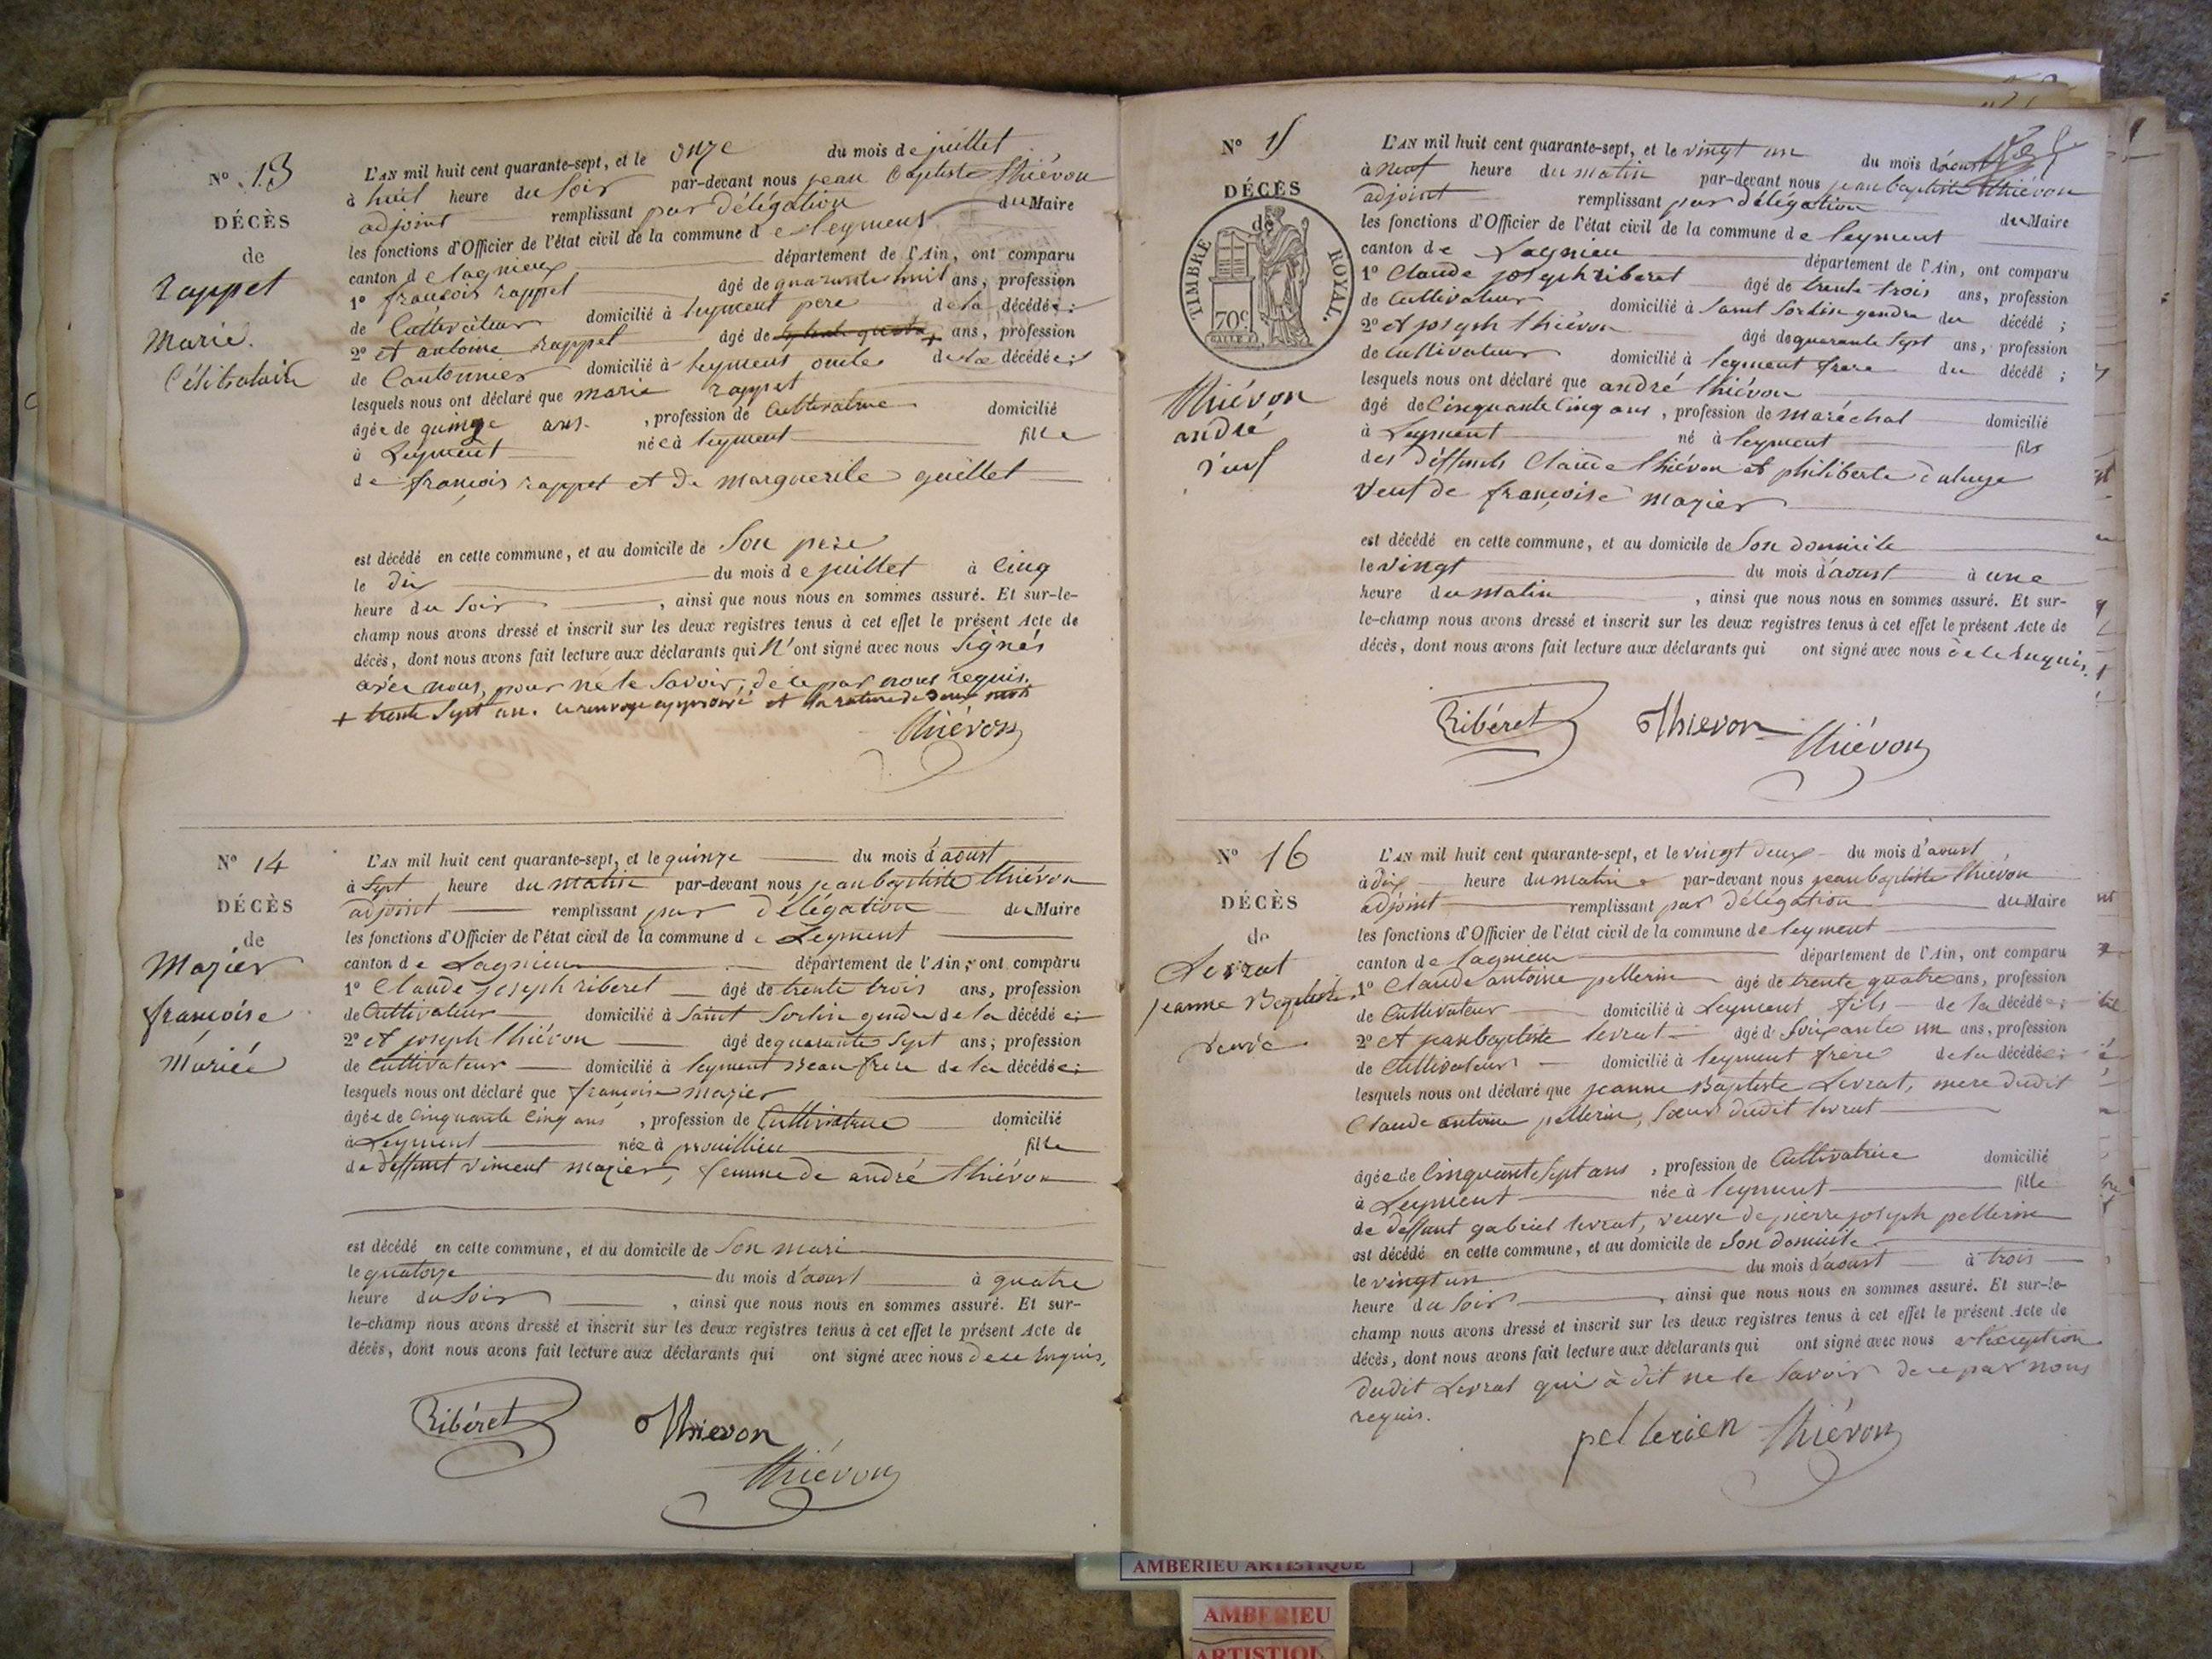 N° 13
DÉCÈS
de
Rappet
Marie
Célibataire
L'AN mil huit cent quarante-sept, et le onze du mois de juillet
à huit heure du Soir par-devant nous jean Baptiste thiévon
adjoint remplissant par délégation du Maire
les fonctions d'Officier de l'état civil de la commune de leyment
canton de lagnieu département de l'Ain, ont comparu
1° françois rappet âgé de quarante huit ans, profession
de Cultivateur domicilié à leyment pere de la décédée ;
2° et antoine rappet âgé de + ans, profession
de Cantonnier domicilié à leyment oncle de la décédée ;
lesquels nous ont déclaré que marie rappet
âgée de quinze ans , profession de Cultivatrice domicilié
à Leyment née à leyment fille
de françois rappet et de marguerite guillet
est décédé en cette commune, et au domicile de Son pere
le dix du mois de juillet à Cinq
heure du Soir , ainsi que nous nous en sommes assuré. Et sur-le-
champ nous avons dressé et inscrit sur les deux registres tenus à cet effet le présent Acte de
décès, dont nous avons fait lecture aux déclarants qui N'ont signé avec nous Signés
avec nous, pour ne le Savoir, de ce par nous requis.
+ trente Sept an. le renvoy approuvé et la rature de deux mots
thiévon
N° 14
DÉCÈS
de
Mazier
françoise
Mariée
L'AN mil huit cent quarante-sept, et le quinze du mois d'aoust
à Sept heure du matin par-devant nous jean baptiste thiévon
adjoint remplissant par délégation du Maire
les fonctions d'Officier de l'état civil de la commune de Leyment
canton de Lagnieu département de l'Ain, ont comparu
1° Claude joseph riberet âgé de trente trois ans, profession
de Cultivateur domicilié à Saint Sorlin gendre de la décédée ;
2° et joseph thiévon âgé de quarante Sept ans, profession
de Cultivateur domicilié à leyment Beau frere de la décédée ;
lesquels nous ont déclaré que françoise mazier
âgée de Cinquante Cinq ans , profession de Cultivatrice domicilié
à Leyment née à prouillieu fille
de deffunt vincent mazier, femme de andré thiévon
est décédé en cette commune, et au domicile de Son mari
le quatorze du mois d'aoust à quatre
heure du Soir , ainsi que nous nous en sommes assuré. Et sur-
le-champ nous avons dressé et inscrit sur les deux registres tenus à cet effet le présent Acte de
décès, dont nous avons fait lecture aux déclarants qui ont signé avec nous de ce Enquis,
Ribéret
Thievon
thiévon
N° 15
DÉCÈS
de
TIMBRE ROYAL.
70c
thiévon
andré
veuf
L'AN mil huit cent quarante-sept, et le vingt un du mois d'aoust
à neuf heure du matin par-devant nous jean baptiste thiévon
adjoint remplissant par délégation du Maire
les fonctions d'Officier de l'état civil de la commune de leyment
canton de Lagnieu département de l'Ain, ont comparu
1° Claude joseph riberet âgé de trente trois ans, profession
de Cultivateur domicilié à Saint Sorlin gendre du décédé ;
2° et joseph thiévon âgé de quarante Sept ans, profession
de Cultivateur domicilié à leyment frere du décédé ;
lesquels nous ont déclaré que andré thiévon
âgé de Cinquante Cinq ans , profession de maréchal domicilié
à Leyment né à leyment fils
des deffunts Claude thiévon et philiberte
Veuf de françoise mazier
est décédé en cette commune, et au domicile de Son domicile
le vingt du mois d'aoust à une
heure du matin , ainsi que nous nous en sommes assuré. Et sur-
le-champ nous avons dressé et inscrit sur les deux registres tenus à cet effet le présent Acte de
décès, dont nous avons fait lecture aux déclarants qui ont signé avec nous de ce Enquis,
Ribéret
Thievon
thiévon
N° 16
DÉCÈS
de
Levrat
jeanne Baptiste
veuve
L'AN mil huit cent quarante-sept, et le vingt deux du mois d'aoust
à dix heure du matin par-devant nous jean baptiste thiévon
adjoint remplissant par délégation du Maire
les fonctions d'Officier de l'état civil de la commune de leyment
canton de lagnieu département de l'Ain, ont comparu
1° Claude antoine pellerin âgé de trente quatre ans, profession
de Cultivateur domicilié à Leyment fils de la décédée ;
2° et jean baptiste levrat âgé de Soixante un ans, profession
de Cultivateur domicilié à leyment frère de la décédée ;
lesquels nous ont déclaré que jeanne Baptiste Levrat, mere dudit
Claude antoine pellerin, Soeur dudit levrat
âgée de Cinquante Sept ans , profession de Cultivatrice domicilié
à Leyment née à leyment fille
de deffunt gabriel levrat, veuve de pierre joseph pellerin
est décédé en cette commune, et au domicile de Son domicile
le vingt un du mois d'aoust à trois
heure du Soir , ainsi que nous nous en sommes assuré. Et sur-le-
champ nous avons dressé et inscrit sur les deux registres tenus à cet effet le présent Acte de
décès, dont nous avons fait lecture aux déclarants qui ont signé avec nous à l'exception
dudit Levrat qui à dit ne le Savoir de ce par nous
requis.
pellerien
thiévon
AMBERIEU ARTISTIQUE
AMBERIEU
ARTISTIQ